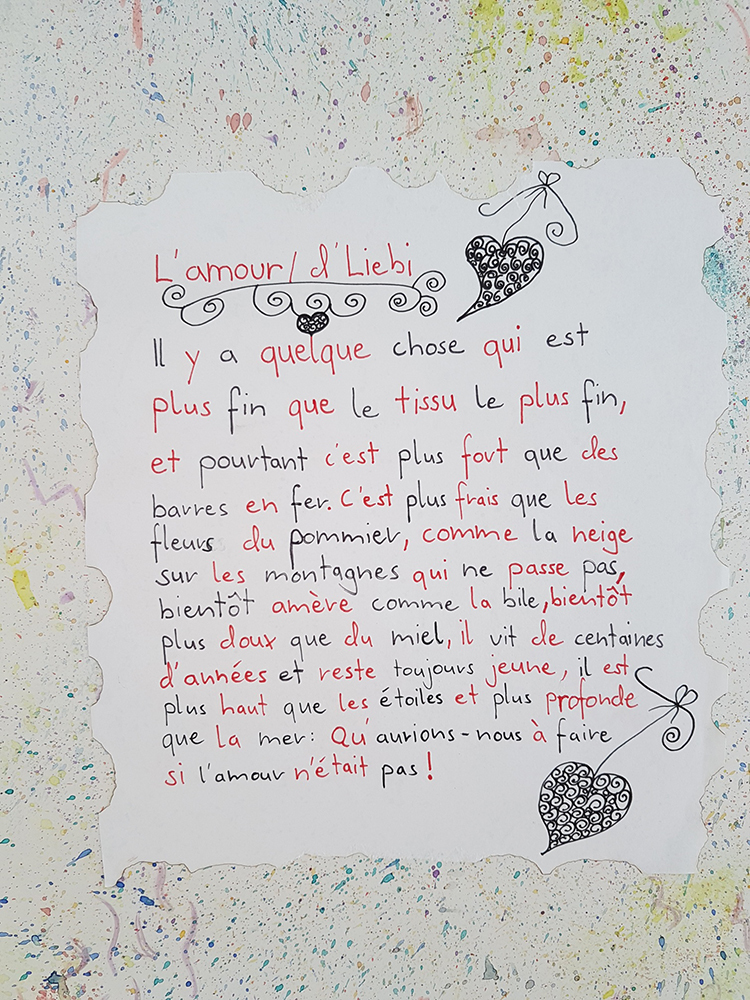 L'amour/d'Liebi
Il y a quelque chose qui est
plus fin que le tissu le plus fin,
et pourtant c'est plus fort que des
barres en fer. C'est plus frais que les
fleurs du pommier, comme la neige
sur les montagnes qui ne passe pas,
bientôt amère comme la bile, bientôt
plus doux que du miel, il vit de centaines
d'années et reste toujours jeune, il est
plus haut que les étoiles et plus profonde
que la mer: Qu'aurions-nous à faire
si l'amour n'était pas!